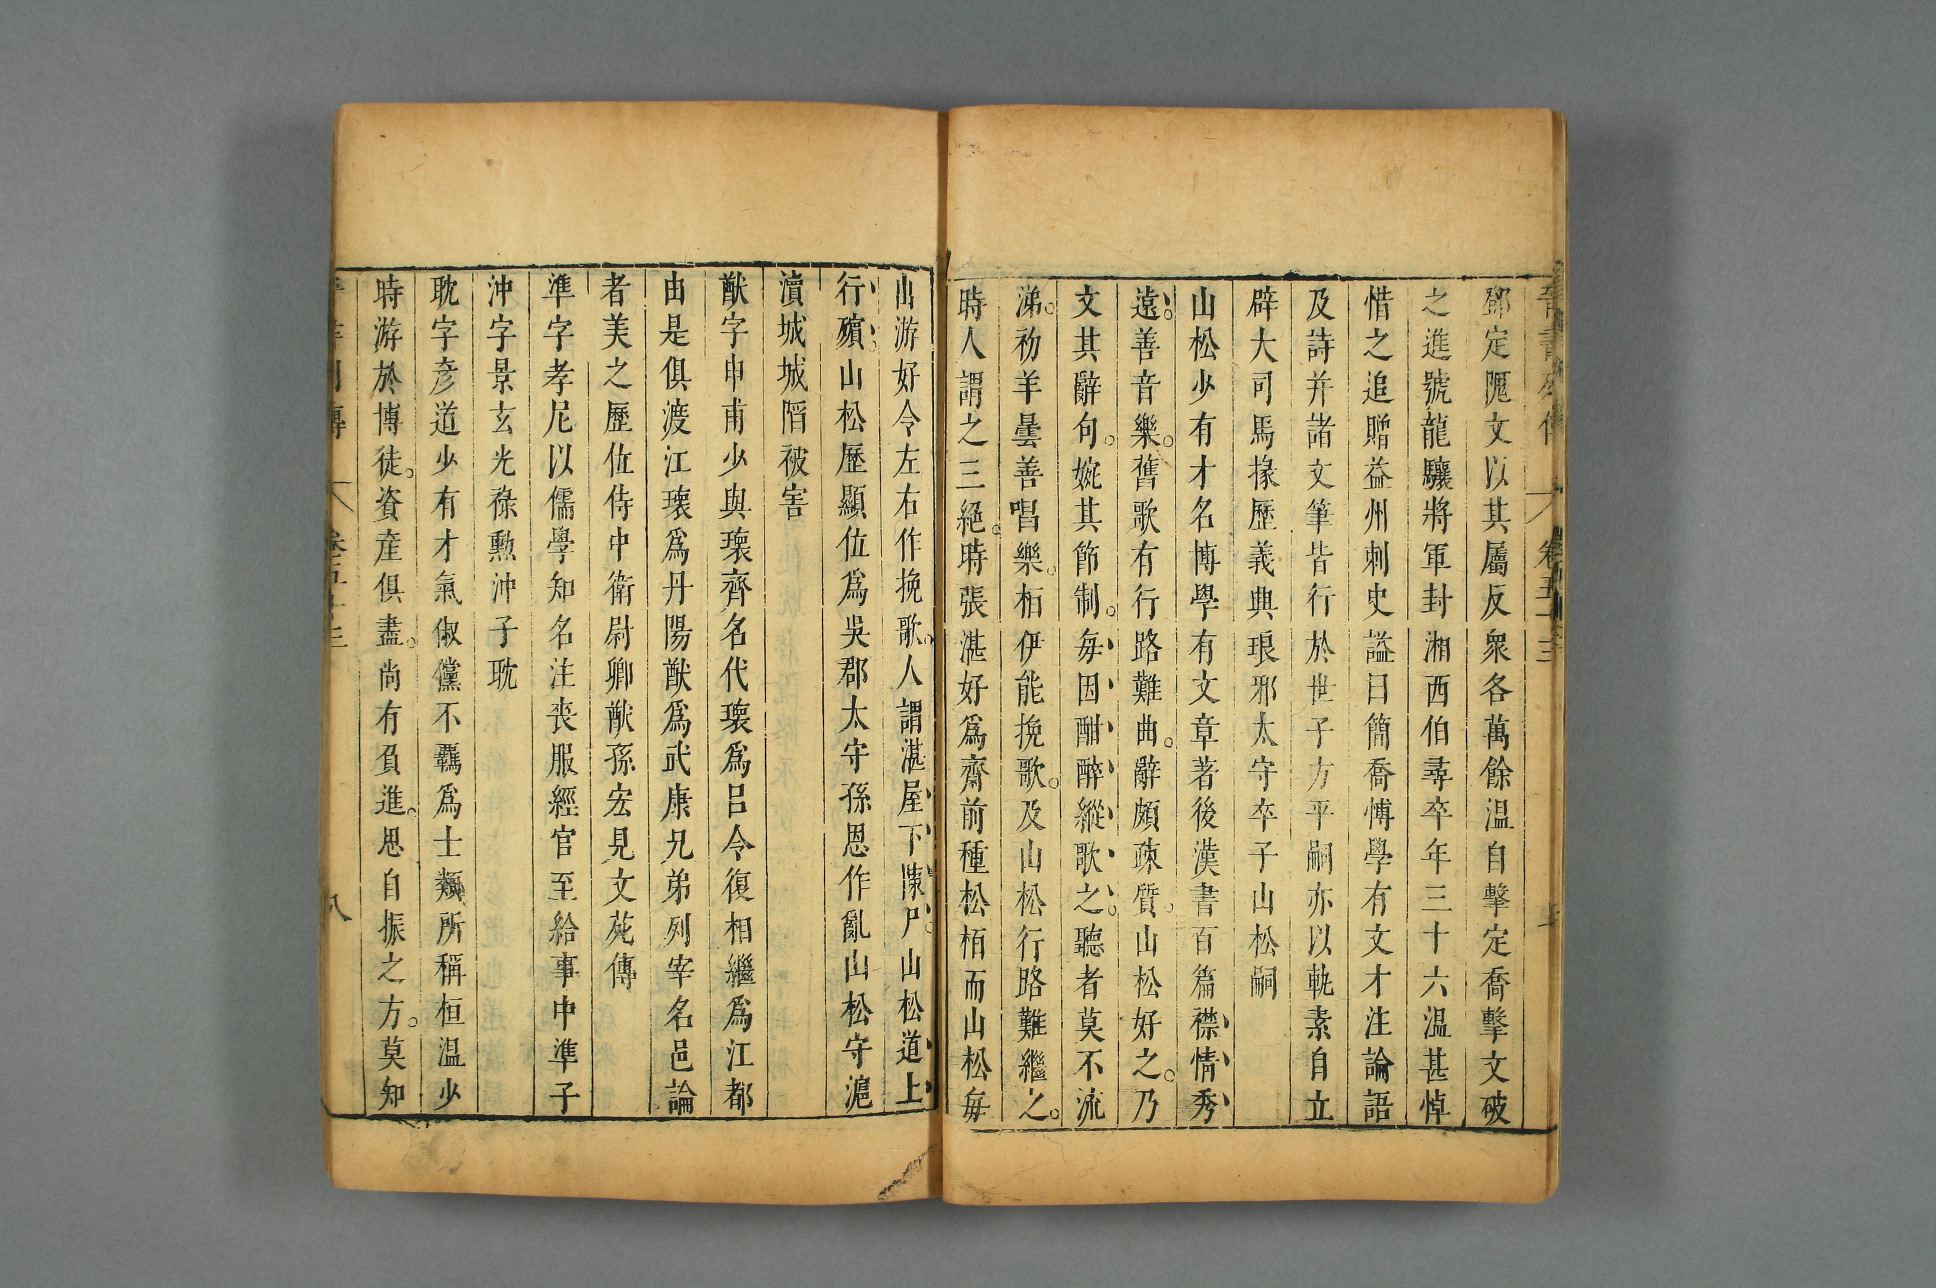 鄧定隗文以其屬反衆各萬餘温自擊定喬擊文破
之進號龍驤將軍封湘西伯尋卒年三十六温甚悼
惜之追贈益州刺史謚曰簡喬博學有文才注論語
及詩并諸文筆皆行於世子方平嗣亦以軌素自立
辟大司馬掾歷義興琅邪太守卒子山松嗣
山松少有才名博學有文章著後漢書百篇襟情秀
遠。善音樂。舊歌有行路難曲。辭頗疎質。山松好之。乃
文其辭句。婉其節制。每因酣醉縱歌之。聽者莫不流
涕。初羊曇善唱樂。桓伊能挽歌。及山松行路難繼之。
時人謂之三絕。時張湛好爲齋前種松栢而山松每
出游好令左右作挽歌。人謂湛屋下陳尸。山松道上
行殯。山松歷顯位爲吳郡太守孫恩作亂山松守滬
瀆城城陷被害
猷字申甫少與瓌齊名代瓌爲呂令復相繼爲江都
由是俱渡江瓌爲丹陽猷爲武康兄弟列宰名邑論
者美之歷位侍中衛尉卿猷孫宏見文苑傳
準字孝尼以儒學知名注喪服經官至給事中準子
沖字景玄光祿勲沖子耽
耽字彥道少有才氣俶儻不羈爲士類所稱桓温少
時游於博徒。資産俱盡。尚有負進。思自振之方。莫知
八